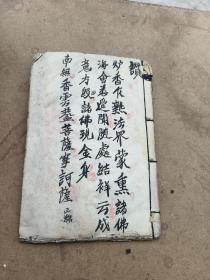 讚
炉香乍热法界蒙熏諸佛
海會悉遥聞随處結祥云成
意方殷諸佛現全身
南無香雲盖菩薩摩訶薩 三稱